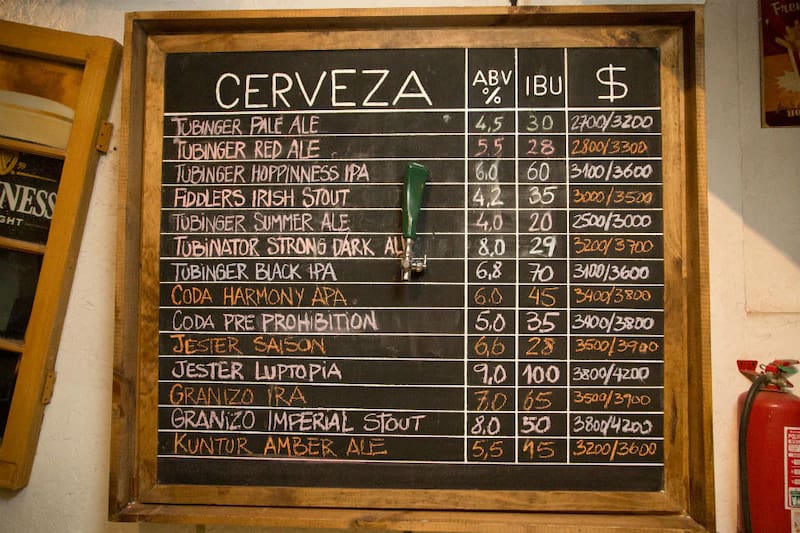 CERVEZA ABV % IBU $
TÜBINGER PALE ALE 4,5 30 2700/3200
TÜBINGER RED ALE 5,5 28 2800/3300
TÜBINGER HOPPINNESS IPA 6,0 60 3100/3600
FIDDLERS IRISH STOUT 4,2 35 3000/3500
TÜBINGER SUMMER ALE 4,0 20 2500/3000
TÜBINATOR STRONG DARK AL 8,0 29 3200/3700
TÜBINGER BLACK IPA 6,8 70 3100/3600
CODA HARMONY APA 6,0 45 3400/3800
CODA PRE PROHIBITION 5,0 35 3400/3800
JESTER SAISON 6,6 28 3500/3900
JESTER LUPTOPIA 9,0 100 3800/4200
GRANIZO IRA 7,0 65 3500/3900
GRANIZO IMPERIAL STOUT 8,0 50 3800/4200
KUNTUR AMBER ALE 5,5 45 3200/3600
NESS
GHT